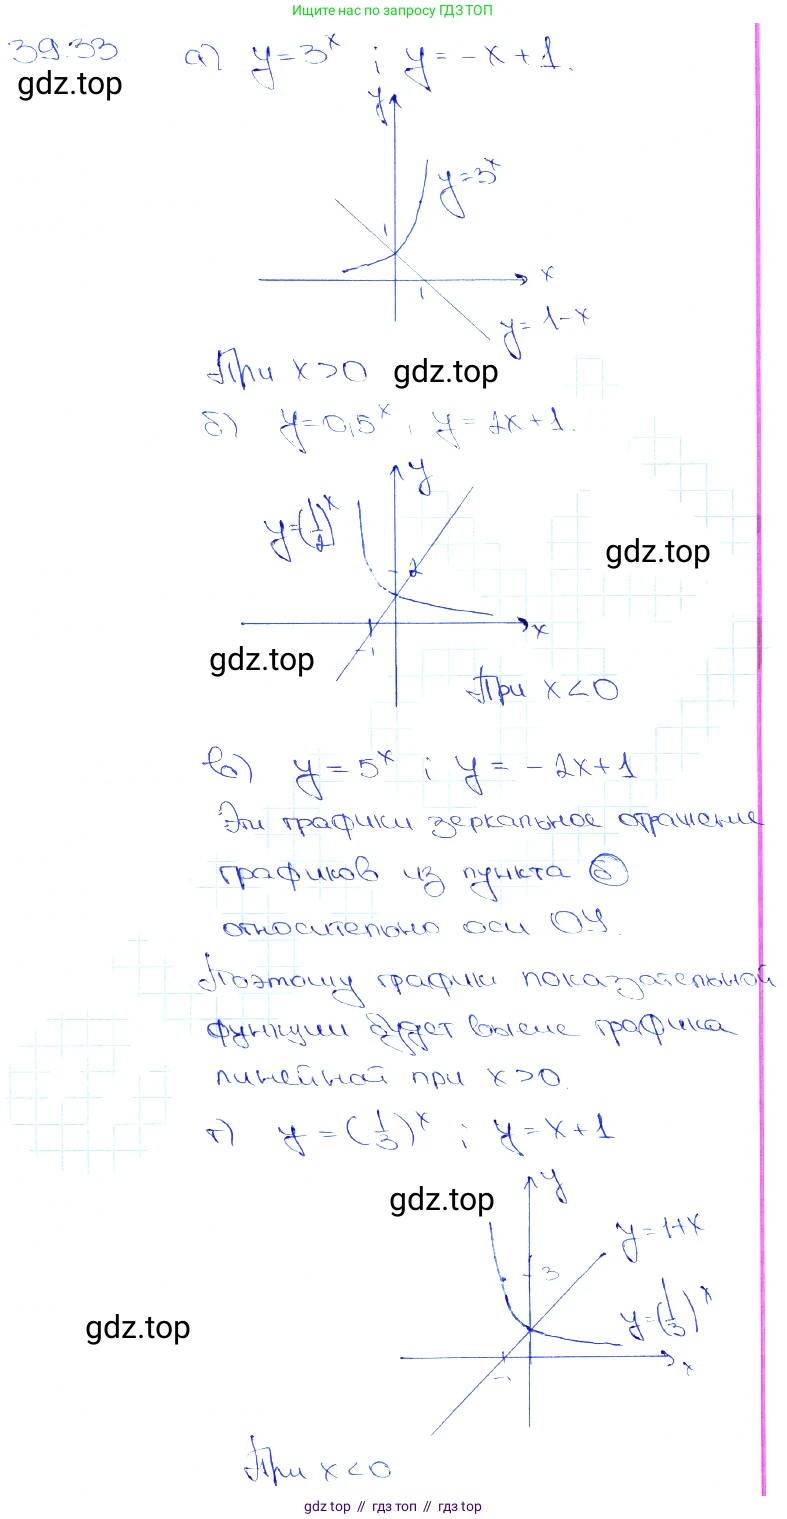 Ищите ответы по запросу ГДЗ ТОП
39.33 а) y = 3^x ; y = -x + 1.
gdz.top
y
y=3^x
1
x
1
y = 1-x
При x>0
gdz.top
б) y=0,5^x, y = 2x+1.
y
y=(1/2)^x
2
gdz.top
x
-1
gdz.top
При x<0
в) y = 5^x ; y = -2x+1
Эти графики зеркальное отражение
графиков из пункта б
относительно оси OY.
Поэтому графики показательной
функции будет выше графика
линейной при x>0.
г) y = (1/3)^x ; y = x+1
y
gdz.top
y = 1+x
3
y=(1/3)^x
gdz.top
x
-1
При x<0
gdz top // гдз топ // гдз top